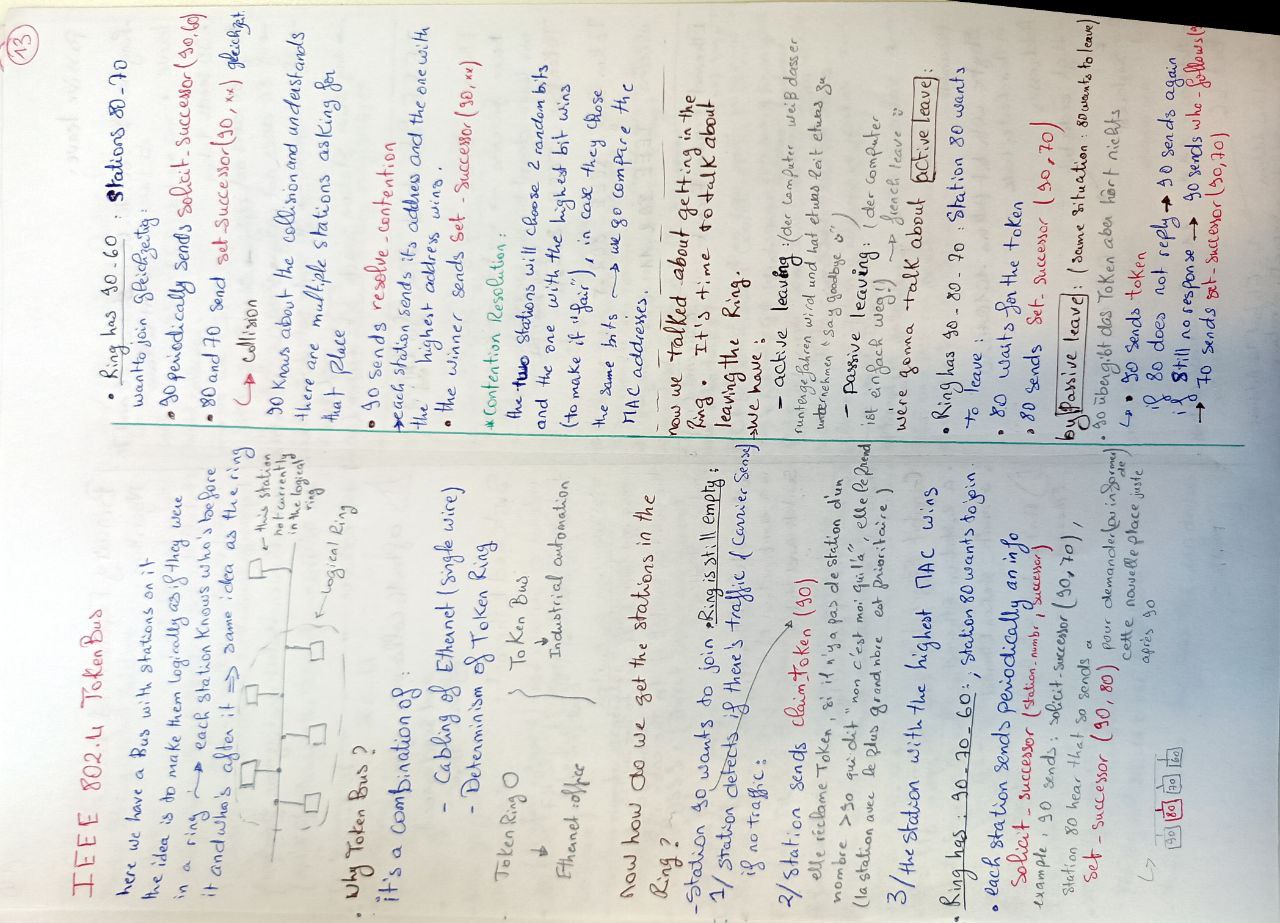 IEEE 802.4 Token Bus
here we have a Bus with stations on it
the idea is to make them logically as if they were
in a ring → each station knows who's before
it and who's after it ⇒ same idea as the ring
this station
not currently
in the logical
ring
logical Ring
• Why Token Bus?
it's a combination of:
- Cabling of Ethernet (Single wire)
- Determinism of Token Ring
Token Ring
Token Bus
Ethernet: office
Industrial automation
now how do we get the stations in the
Ring?
- Station 90 wants to join • Ring is still empty:
1/ Station detects if there's traffic (Carrier Sense)
if no traffic:
2/ Station sends claim token (90)
elle réclame Token, si il n'y a pas de station d'un
nombre >90 qui dit "non c'est moi qui l'a", elle le prend
(la station avec le plus grand nbre est prioritaire)
3/ the station with the highest MAC wins
• Ring has: 90-70-60: , station 80 wants to join.
• each station sends periodically an info
Solicit-successor (station-number, successor)
example: 90 sends: solicit-successor (90,70),
station 80 hear that so sends a
Set-successor (90,80) pour demander (ou informer
de)
cette nouvelle place juste
après 90
90 80 70 60
13
• Ring has 90-60: Stations 80-70
want to join gleichzeitig:
• 90 periodically sends solicit-successor (90,60)
• 80 and 70 send set-successor (90,xx) gleichzeit.
↳ Collision
90 knows about the collision and understands
there are multiple stations asking for
that place
• 90 sends resolve-contention
→ each station sends its address and the one with
the highest address wins.
• the winner sends Set-Successor (90,xx)
* Contention Resolution:
the two stations will choose 2 random bits
and the one with the highest bit wins
(to make it "fair"), in case they chose
the same bits → we go compare the
MAC addresses.
now we talked about getting in the
Ring. It's time to talk about
leaving the Ring.
→ We have:
- active leaving: (der Computer weiß dass er
runtergefahren wird und hat etwas Zeit etwas zu
unternehmen "say goodbye")
- Passive leaving: (der computer
ist einfach weg!) → french leave
we're gonna talk about active leave:
• Ring has 90-80-70: Station 80 wants
to leave:
• 80 waits for the token
• 80 sends Set-successor (90,70)
by Passive leave: (same situation: 80 wants to leave)
• 90 übergibt das Token aber hört nichts
↳ • 90 sends token
if 80 does not reply → 90 sends again
if Still no response → 90 sends who-follows
→ 70 sends set-successor (90,70)